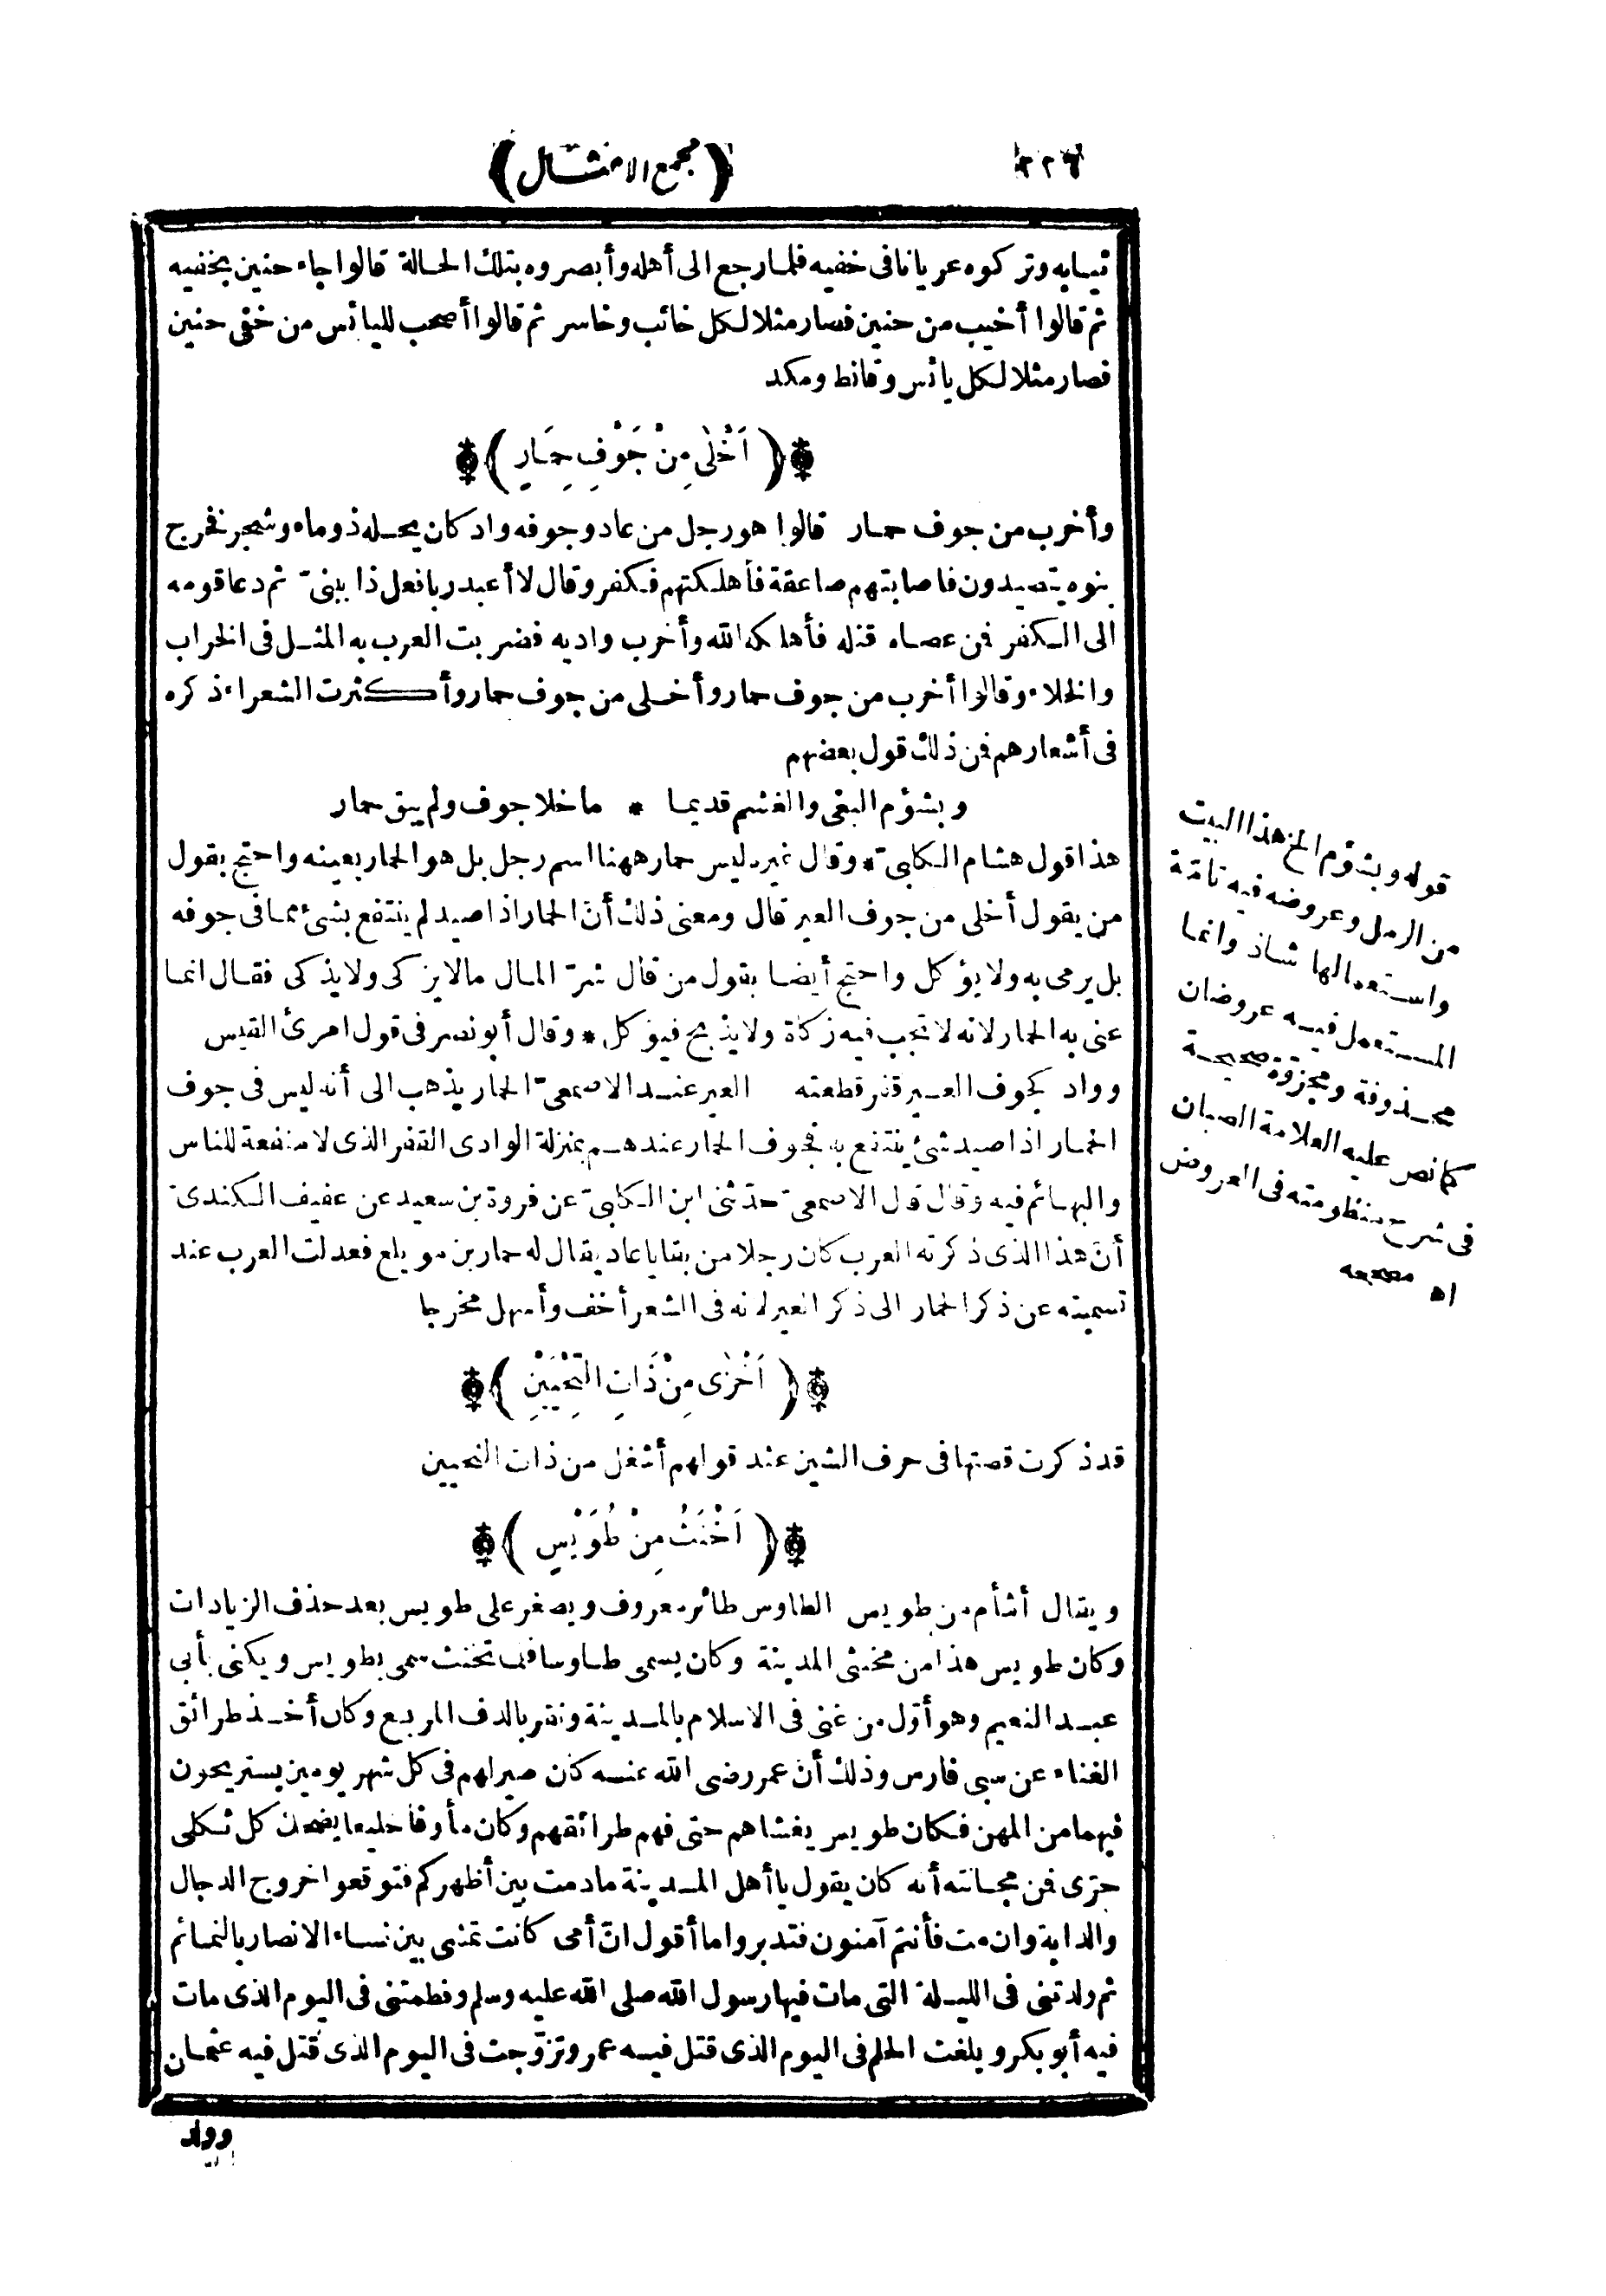 ٢٢٦
(مجمع الامثال)
ثيابه وتركوه عريانا فى خفيه فلما رجع الى أهله وأبصروه بتلك الحالة قالوا جاء حنين بخفيه
ثم قالوا أخيب من حنين فصار مثلا لكل خائب وخاسر ثم قالوا أصحب لليائس من خفى حنين
فصار مثلا لكل يائس وقانط ومكد
(اَخْلٰى مِنْ جَوْفِ حِمَارٍ)
وأخرب من جوف حمار قالوا هو رجل من عاد وجوفه واد كان يحله ذو ماء وشجر فخرج
بنوه يتصيدون فاصابتهم صاعقة فأهلكتهم فكفر وقال لا أعبد ربا فعل ذا ببنىّ ثم دعا قومه
الى الكفر فمن عصاه قتله فأهلكه الله وأخرب واديه فضربت العرب به المثل فى الخراب
والخلاء وقالوا أخرب من جوف حمار وأخلى من جوف حمار وأكثرت الشعراء ذكره
فى أشعارهم فمن ذلك قول بعضهم
وبشؤم البغى والغشم قديما * ما خلا جوف ولم يبق حمار
هذا قول هشام الكلبىّ * وقال غيره ليس حمار ههنا اسم رجل بل هو الحمار بعينه واحتج بقول
من يقول أخلى من جوف العير قال ومعنى ذلك أنّ الحمار اذا صيد لم ينتفع بشئ مما فى جوفه
بل يرمى به ولا يؤكل واحتج أيضا بقول من قال شرّ المال مالا يزكى ولا يذكى فقال انما
عنى به الحمار لانه لا تجب فيه زكاة ولا يذبح فيؤكل * وقال أبو نصر فى قول امرئ القيس
وواد كجوف العير قفر قطعته العير عند الاصمعىّ الحمار يذهب الى أنه ليس فى جوف
الحمار اذا صيد شئ ينتفع به فجوف الحمار عندهم بمنزلة الوادى القفر الذى لا منفعة للناس
والبهائم فيه وقال قال الاصمعىّ حدّثنى ابن الكلبىّ عن فروة بن سعيد عن عفيف الكندىّ
أنّ هذا الذى ذكرته العرب كان رجلا من بقايا عاد يقال له حمار بن مويلع فعدلت العرب عند
تسميته عن ذكر الحمار الى ذكر العير لانه فى الشعر أخف وأسهل مخرجا
(اَخْزٰى مِنْ ذَاتِ النِّحْيَيْنِ)
قد ذكرت قصتها فى حرف الشين عند قولهم أشغل من ذات النحيين
(اَخْنَثُ مِنْ طُوَيْسٍ)
ويقال أشأم من طويس الطاوس طائر معروف ويصغر على طويس بعد حذف الزيادات
وكان طويس هذا من مخنثى المدينة وكان يسمى طاوسا فلما تخنث سمى بطويس ويكنى بأبى
عبد النعيم وهو أوّل من غنى فى الاسلام بالمدينة ونقر بالدف المربع وكان أخذ طرائق
الغناء عن سبى فارس وذلك أنّ عمر رضى الله عنه كان صير لهم فى كل شهر يومين يستريحون
فيهما من المهن فكان طويس يغشاهم حتى فهم طرائقهم وكان مأوفا خليعا يضحك كل ثكلى
حرّى فمن مجانته أنه كان يقول يا أهل المدينة مادمت بين أظهركم فتوقعوا خروج الدجال
والدابة وان مت فأنتم آمنون فتدبروا ما أقول انّ أمى كانت تمشى بين نساء الانصار بالنمائم
ثم ولدتنى فى الليلة التى مات فيها رسول الله صلى الله عليه وسلم وفطمتنى فى اليوم الذى مات
فيه أبو بكر وبلغت الحلم فى اليوم الذى قتل فيه عمر وتزوّجت فى اليوم الذى قتل فيه عثمان
وولد
قوله وبشؤم الخ هذا البيت
من الرمل وعروضه فيه تامّة
واستعمالها شاذ وانما
المستعمل فيه عروضان
محذوفة ومجزوّة صحيحة
كما نص عليه العلامة الصبان
فى شرح منظومته فى العروض
اه مصححه